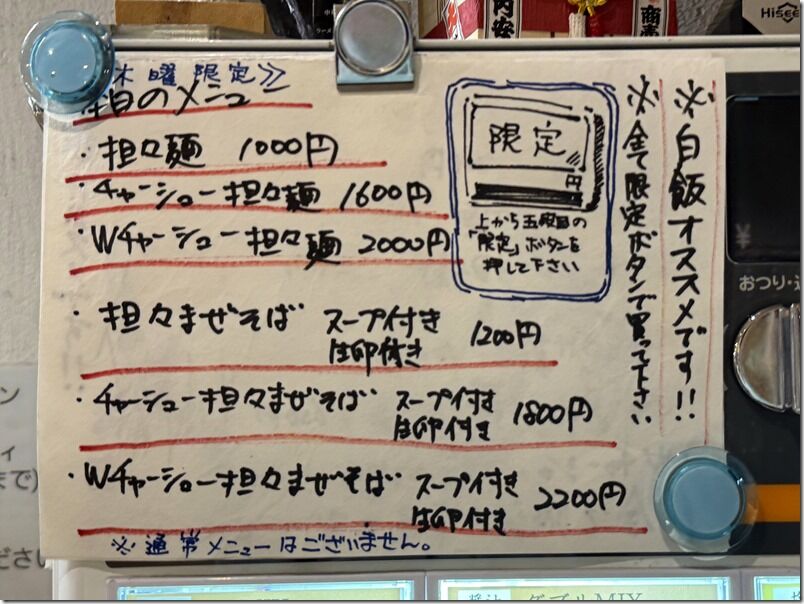 木曜限定≫
本日のメニュー
・担々麺 1000円
・チャーシュー担々麺 1600円
・Wチャーシュー担々麺 2000円
・担々まぜそば スープ付き 生卵付き 1200円
・チャーシュー担々まぜそば スープ付き 生卵付き 1800円
・Wチャーシュー担々まぜそば スープ付き 生卵付き 2200円
※通常メニューはございません。
限定
円
上から五段目の
「限定」ボタンを
押して下さい
※白飯オススメです!!
※全て限定ボタンで買って下さい
内安
商売
Hisee
¥
おつり・
ン
ィ
まで)
ださい
醤油 ダブルMIX